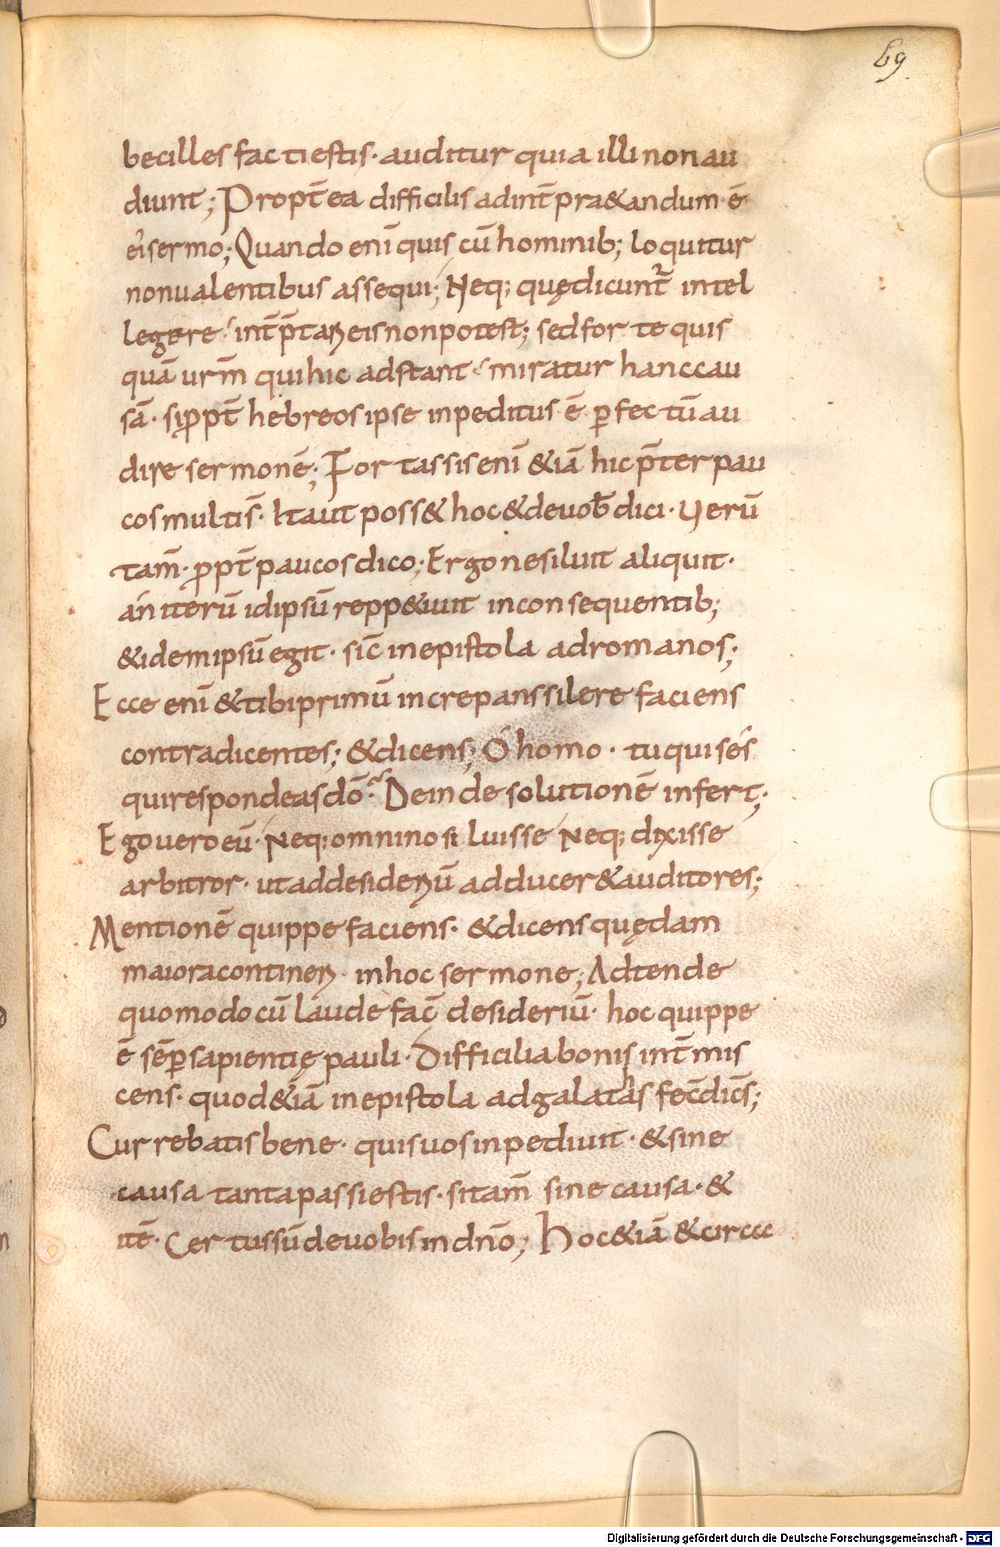 69
becilles facti estis· auditur quia illi non au
diunt; Propt̄ea difficilis ad int̄pra&andum· ē
ei sermo; Quando enī quis cū hominib; loquitur
non ualentibus assequi; Neq; quę dicunt̄ intel
legere int̄p̄tari eis non potest; sed forte quis
quā urm̄ qui hic adstant miratur hanc cau
sā· si ppt̄ hebreos ipse inpeditus ē perfectū au
dire sermonē; Fortassis enī &iā hic p̄ter pau
cos multis· Ita ut poss& hoc & de uob̄ dici· Uerū
tam̄· ppt̄ paucos dico; Ergone siluit aliquit·
an iterū id ipsū repp&iuit in consequentib;
& idem ipsū egit· sic̄ in epistola ad romanos;
Ecce enī & tibi primū increpans silere faciens
contradicentes; & dicens; O homo· tu quis es
qui respondeas dō· Deinde solutionē infert;
Ego uero eū· Neq; omnino siluisse Neq; dixisse
arbitror· ut ad desideriū adducer& auditores;
Mentionē quippe faciens· & dicens quędam
maiora contineri· in hoc sermone; Adtende
quomodo cū laude fac̄ desideriū· hoc quippe
ē sēp sapientię pauli· Difficilia bonis int̄mis
cens· quod &iā in epistola ad galatas fec̄ dic̄s;
Currebatis bene· quis uos inpediuit· & sine
causa tanta passi estis· si tam̄ sine causa· &
itē· Certus sū de uobis in dn̄o; Hoc &iā & circa
Digitalisierung gefördert durch die Deutsche Forschungsgemeinschaft - DFG